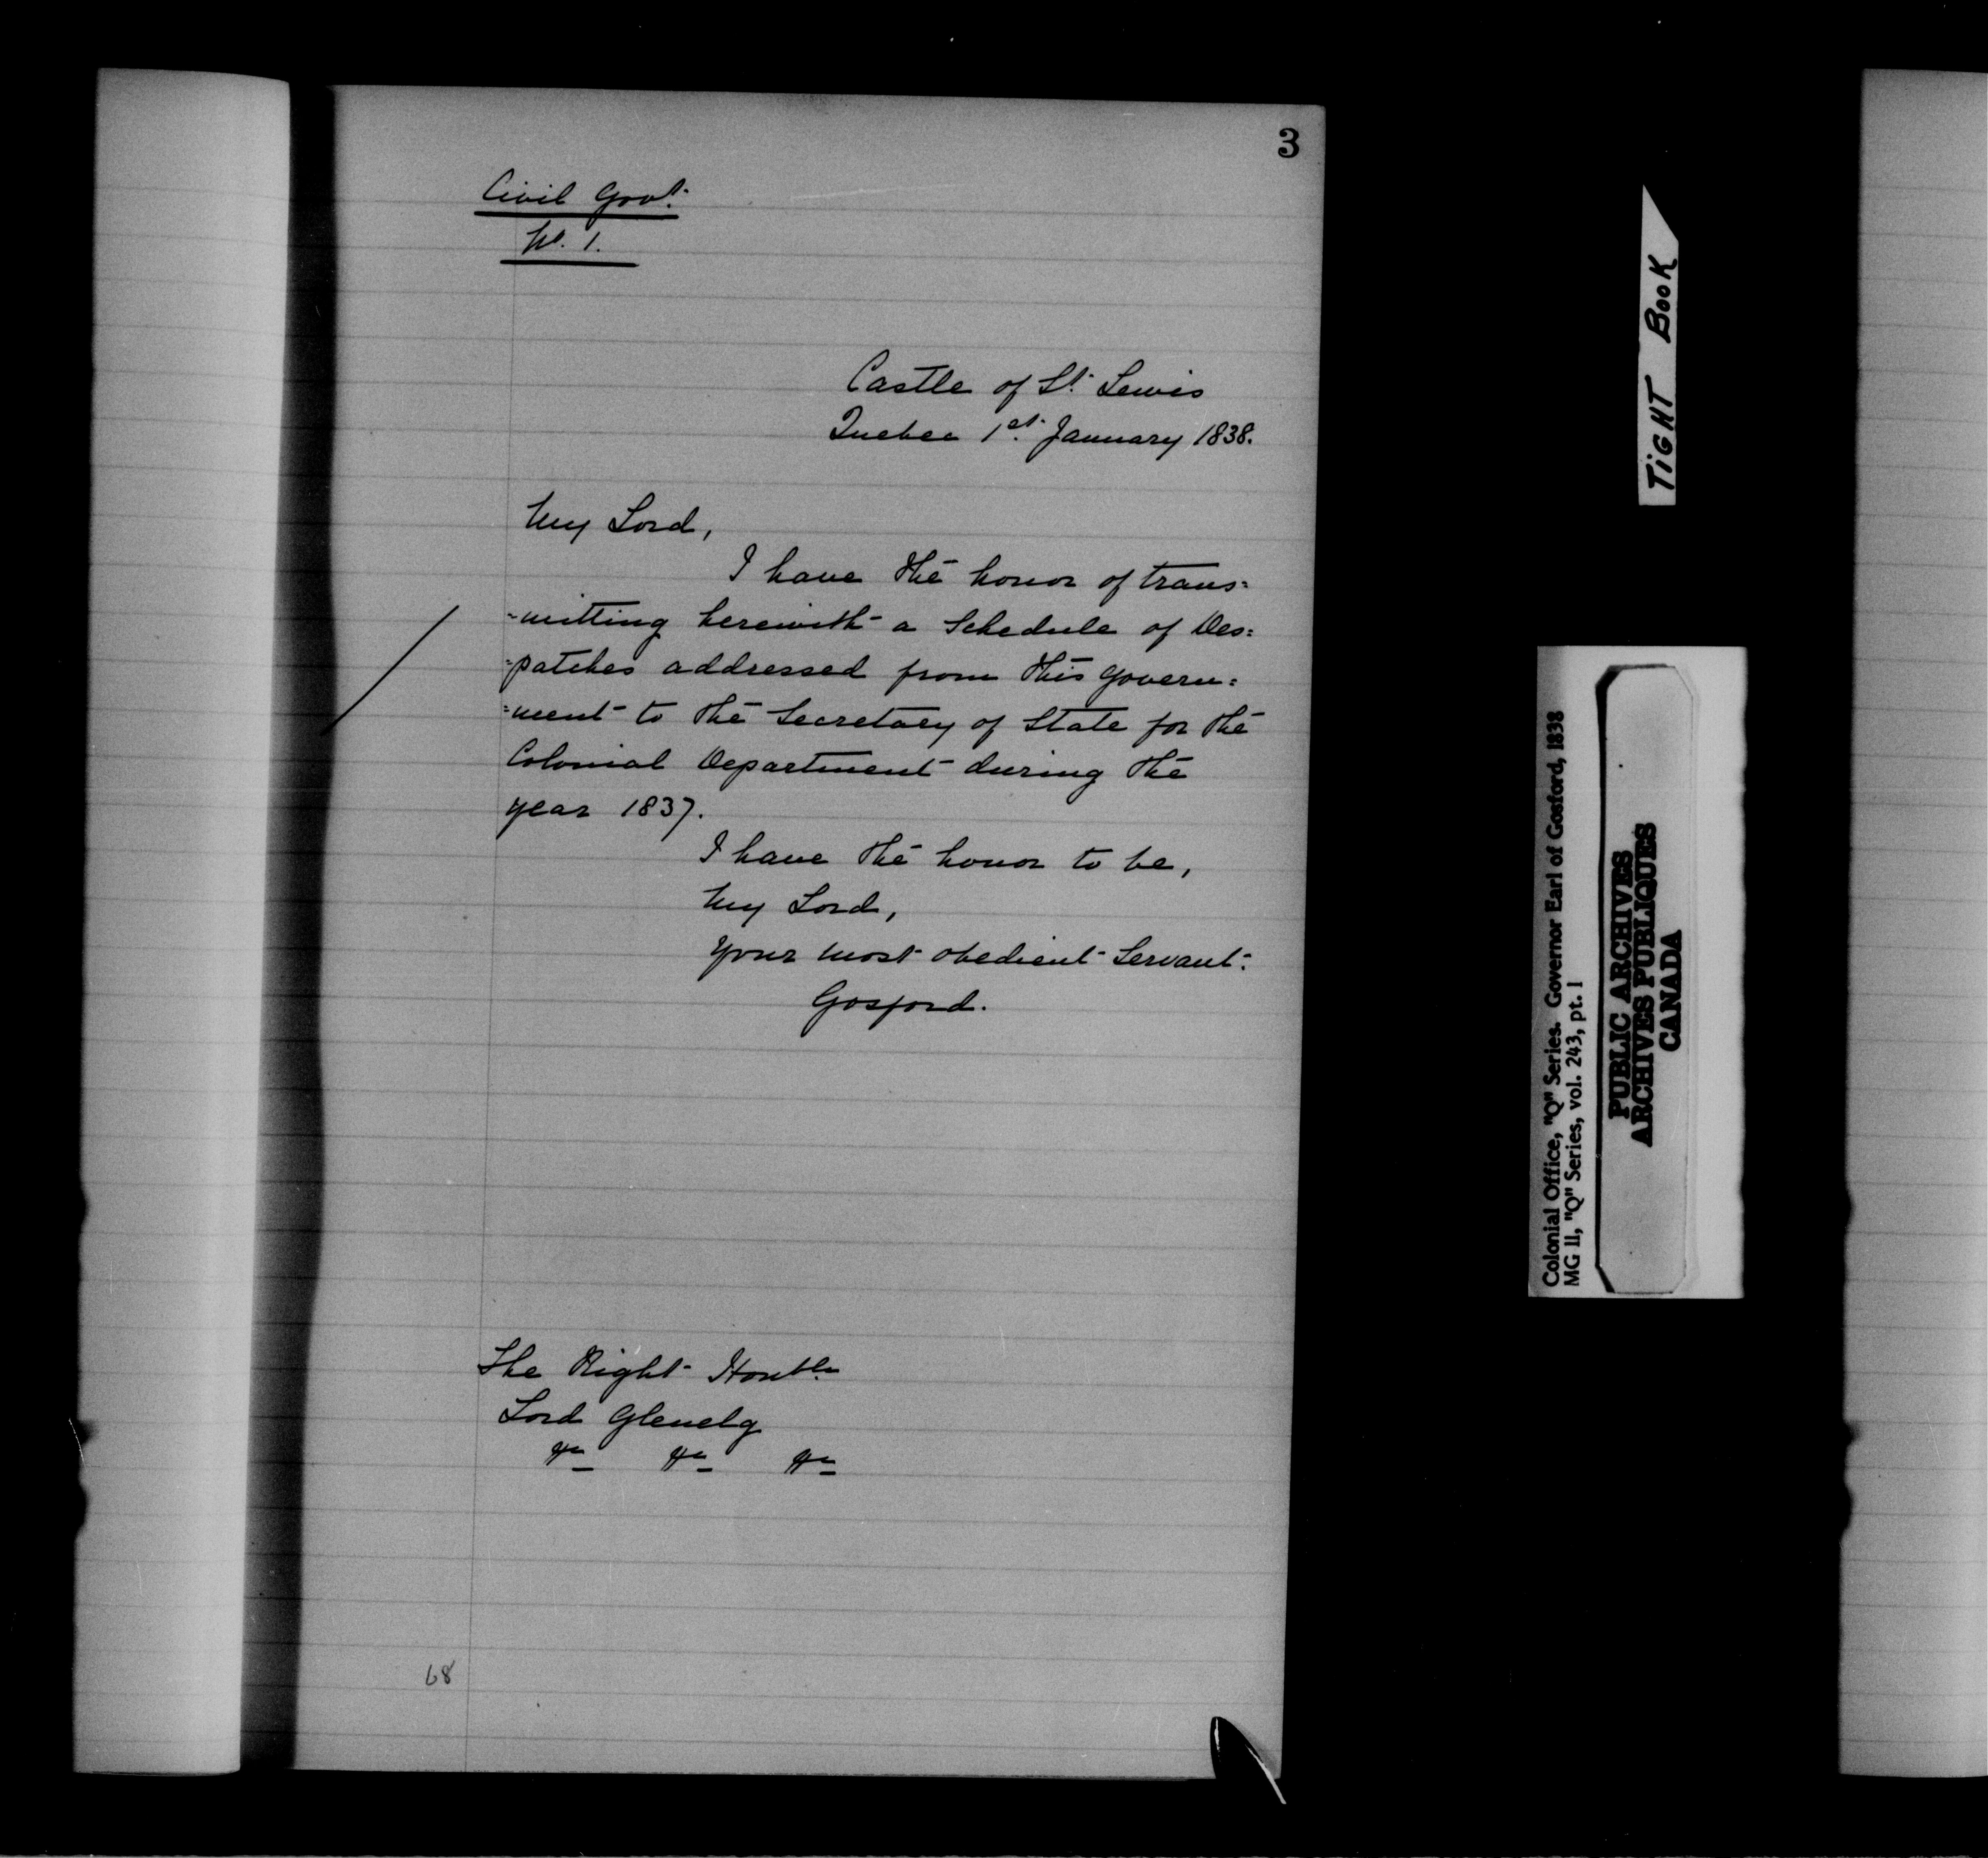 3
Civil Govt.
No. 1.
Castle of St. Lewis
Quebec 1st. January 1838.
My Lord,
I have the honor of trans=
=mitting herewith a Schedule of Des=
=patches addressed from this Govern=
=ment to the Secretary of State for the
Colonial Department during the
year 1837.
I have the honor to be,
My Lord,
Your most obedient Servant.
Gosford.
The Right Honble.
Lord Glenelg
&c &c &c
68
TIGHT BOOK
Colonial Office, "Q" Series. Governor Earl of Gosford, 1838
MG 11, "Q" Series, vol. 243, pt. 1
PUBLIC ARCHIVES
ARCHIVES PUBLIQUES
CANADA